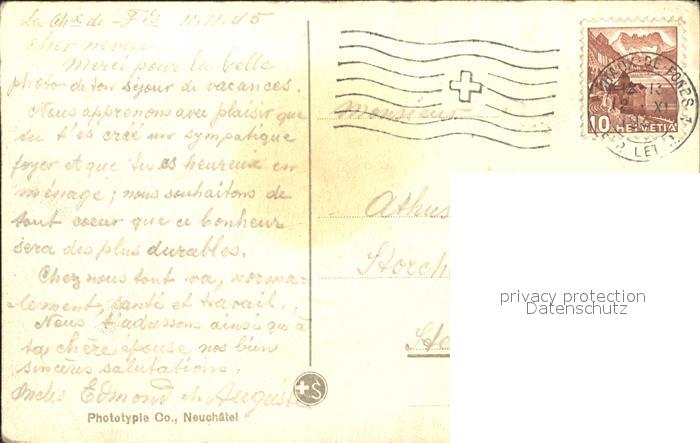 La Chx de-Fds 11.11.45
Cher neveu,
Merci pour la belle
photo de ton séjour de vacances.
Nous apprenons avec plaisir que
tu t'es créé un sympatique
foyer et que tu es heureux en
ménage; nous souhaitons de
tout coeur que ce bonheur
sera des plus durables.
Chez nous tout va, norma-
lement, santé et travail.
Nous t'adressons ainsi qu'à
ta chère épouse nos bien
sincères salutations.
Oncles Edmond et Auguste
Phototypie Co., Neuchâtel
S
Monsieur
Storch
10 HELVETIA
privacy protection
Datenschutz